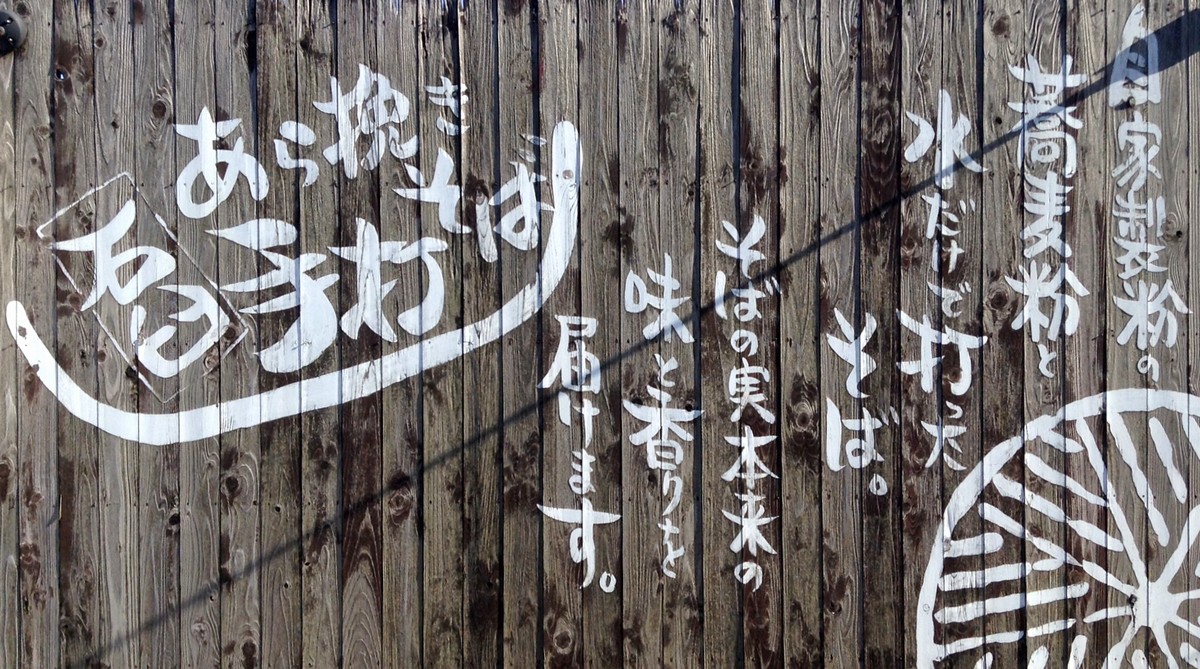 自家製粉の
蕎麦粉と
水だけで打った
そば。
そばの実本来の
味と香りを
届けます。
あら挽き
そば
手打